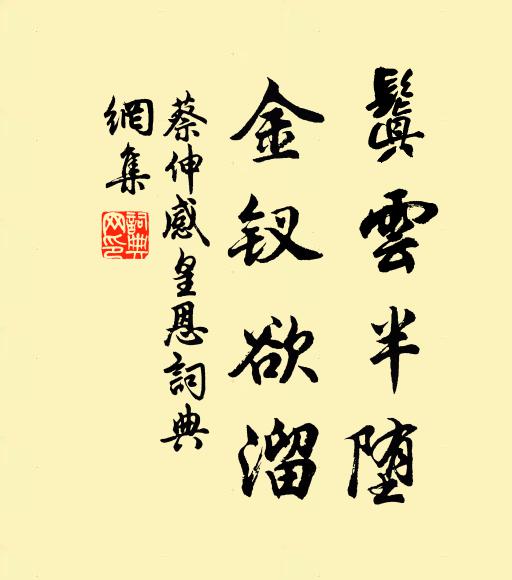 鬒雲半堕
金钗欲溜
蔡伸感皇恩詞典
網集
詞典網印